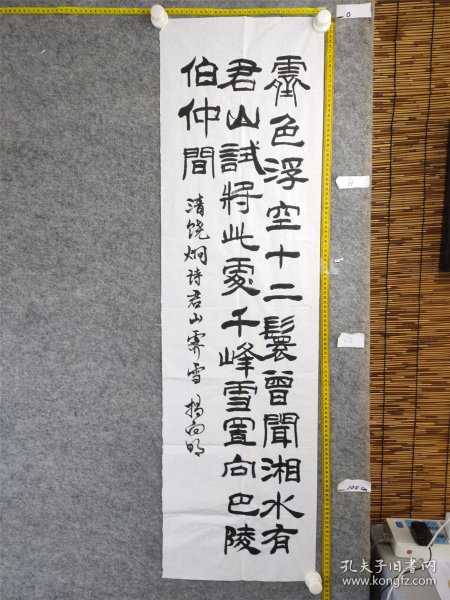 霽色浮空十二鬟曾聞湘水有
君山試將此處千峰雪置向巴陵
伯仲間
清饶炯诗君山霁雪 楊向明
0
100cm
孔夫子旧书网
www.kongfz.com